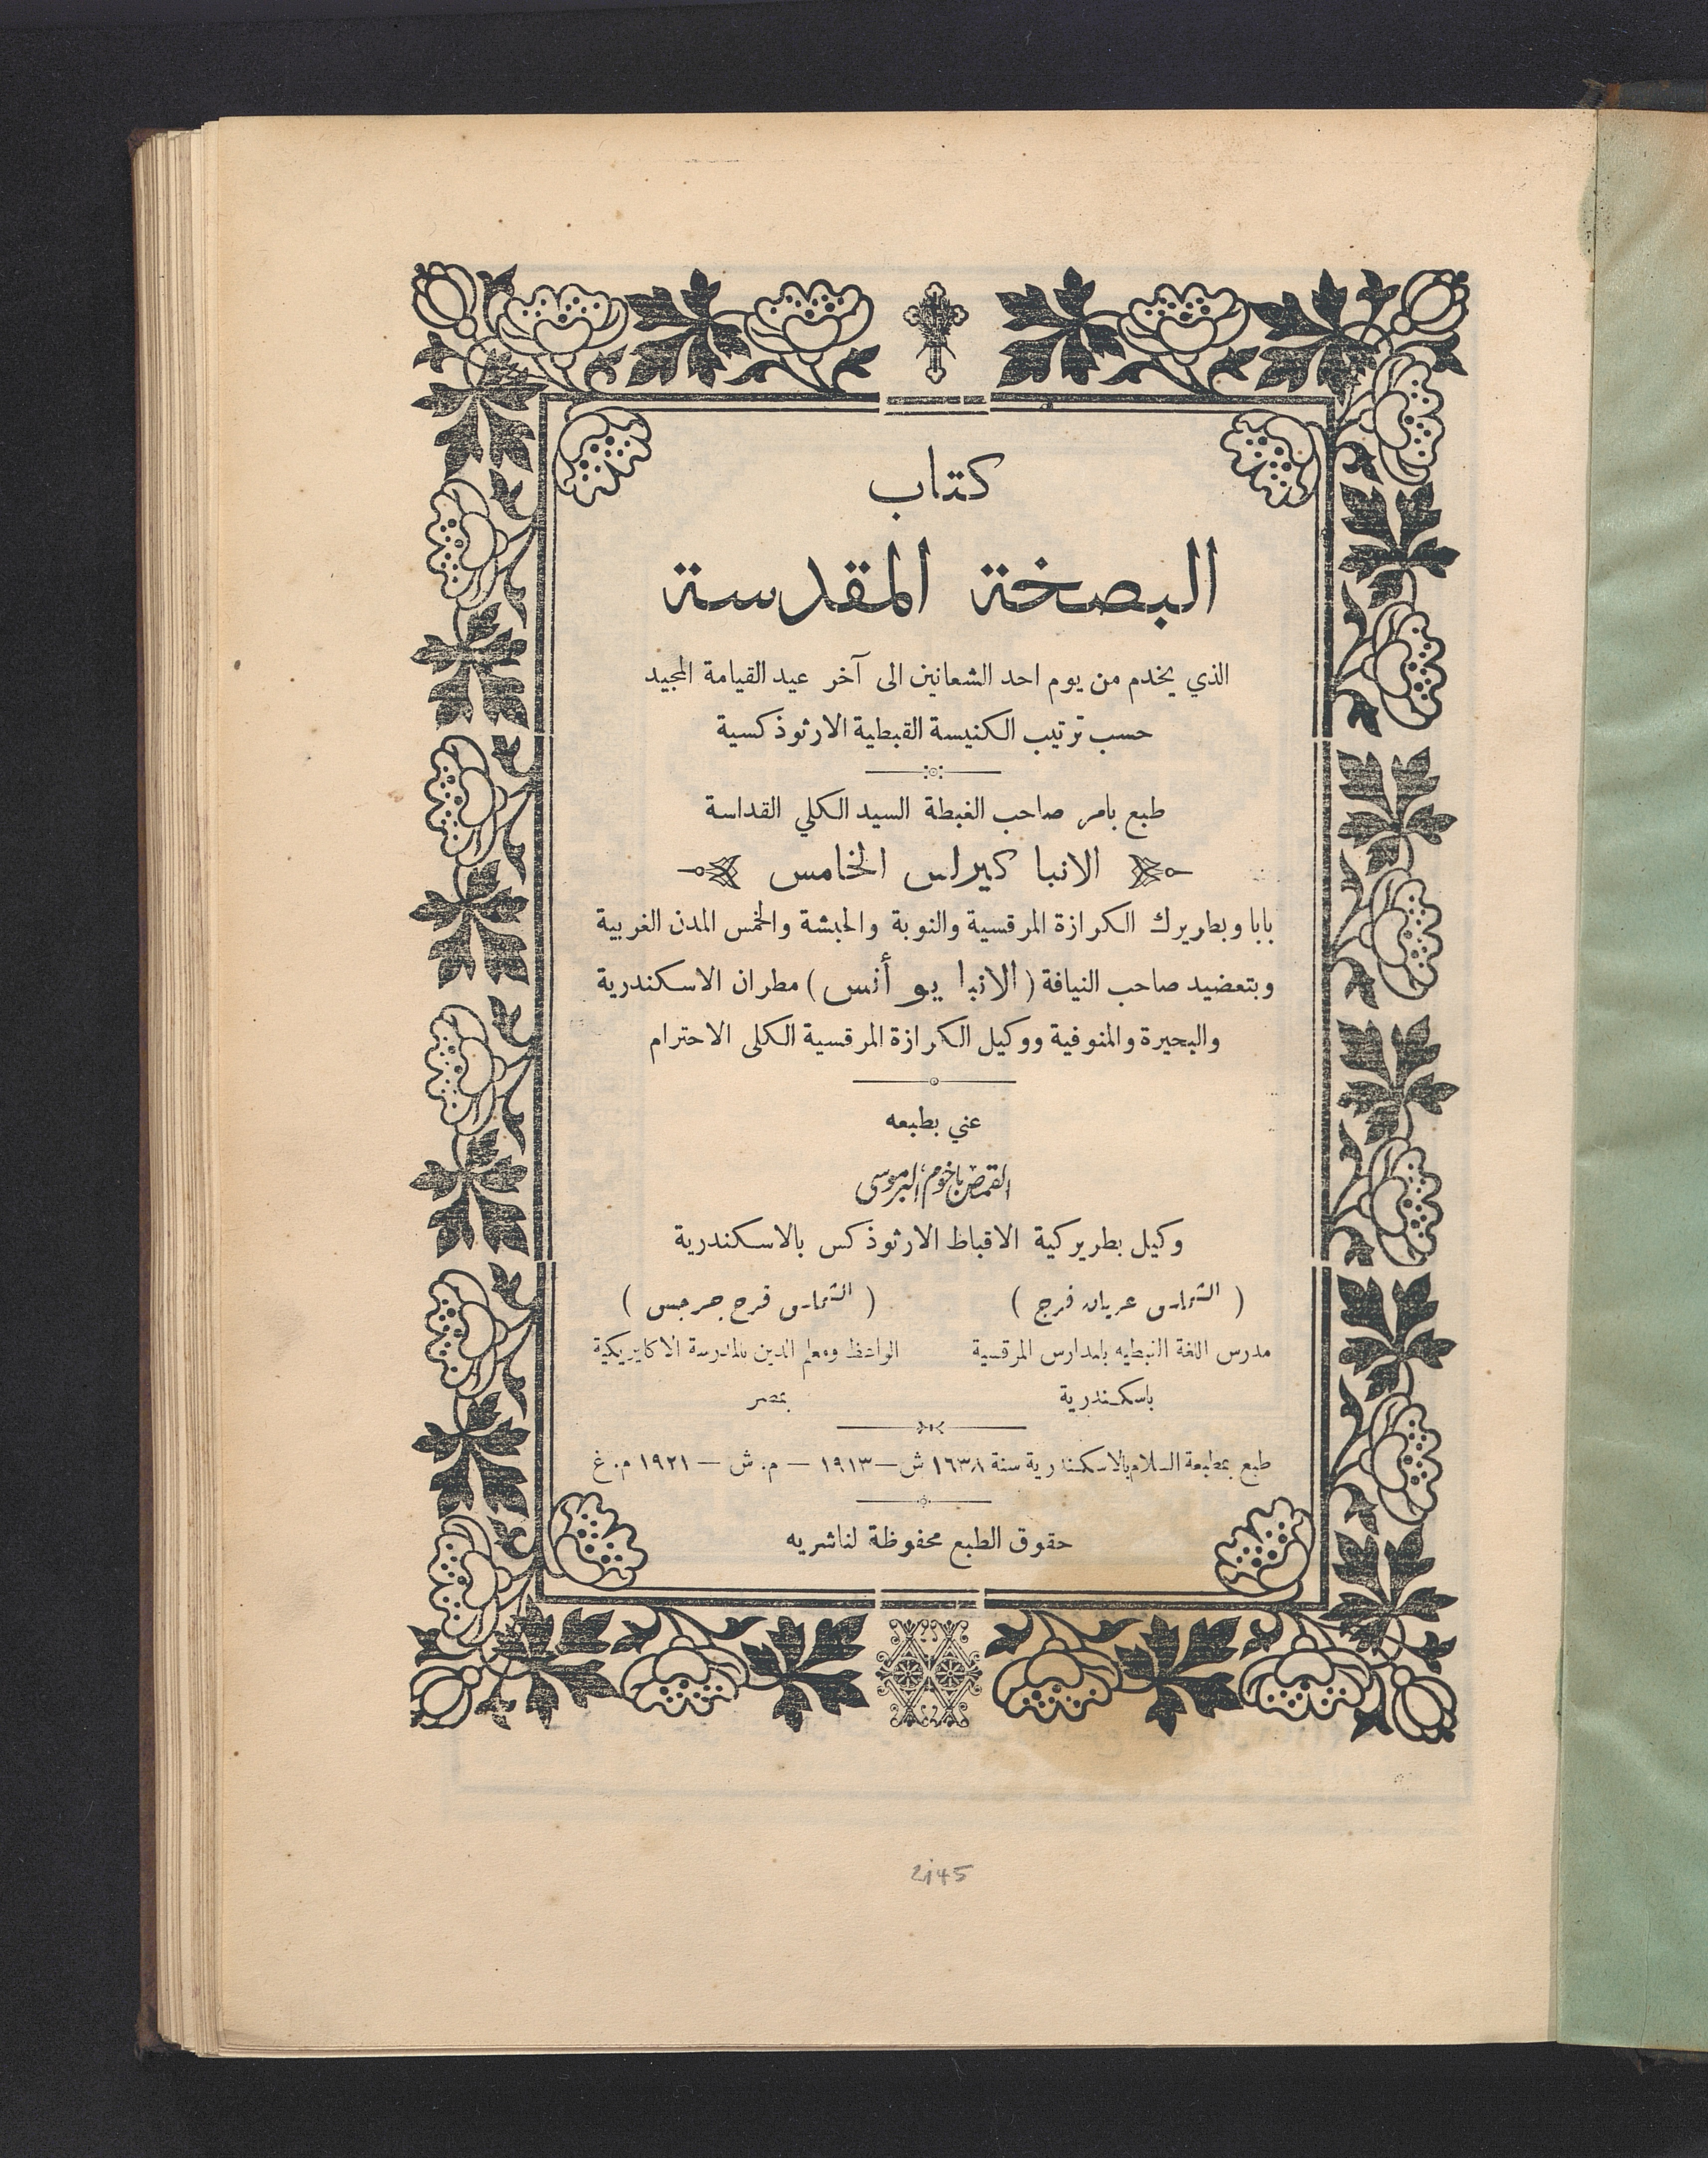 كتاب
البصخة المقدسة
الذي يخدم من يوم احد الشعانين الى آخر عيد القيامة المجيد
حسب ترتيب الكنيسة القبطية الارثوذكسية
طبع بامر صاحب الغبطة السيد الكلي القداسة
الانبا كيرلس الخامس
بابا وبطريرك الكرازة المرقسية والنوبة والحبشة والخمس المدن الغربية
وبتعضيد صاحب النيافة ( الانبا يو أنس ) مطران الاسكندرية
والبحيرة والمنوفية ووكيل الكرازة المرقسية الكلى الاحترام
عني بطبعه
القمص باخوم البرموسى
وكيل بطريركية الاقباط الارثوذكس بالاسكندرية
( الشماس عريان فرج ) ( الشماس فرج جرجس )
مدرس اللغة القبطيه بالمدارس المرقسية الواعظ ومعلم الدين بالمدرسة الاكليريكية
باسكندرية بمصر
طبع بمطبعة السلام بالاسكندرية سنة ١٦٣٨ ش — ١٩١٣ — م. ش — ١٩٢١ م. غ
حقوق الطبع محفوظة لناشريه
2145